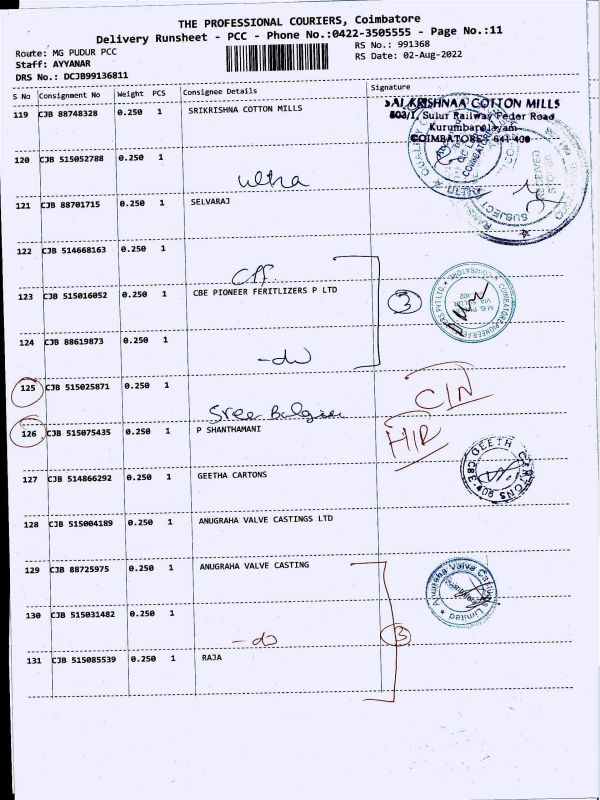 THE PROFESSIONAL COURIERS, Coimbatore
Delivery Runsheet - PCC - Phone No.:0422-3505555 - Page No.:11
Route: MG PUDUR PCC
RS No.: 991368
Staff: AYYANAR
RS Date: 02-Aug-2022
DRS No.: DCJB99136811
S No Consignment No Weight PCS Consignee Details Signature
119 CJB 88748328 0.250 1 SRIKRISHNA COTTON MILLS
SAI KRISHNAA COTTON MILLS
603/1, Sulur Railway Feder Road
Kurumbapalayam
COIMBATORE 641 406
120 CJB 515052788 0.250 1
ultra
121 CJB 88701715 0.250 1 SELVARAJ
122 CJB 514668163 0.250 1
123 CJB 515016052 0.250 1 CBE PIONEER FERITLIZERS P LTD
3
124 CJB 88619873 0.250 1
-do
125 CJB 515025871 0.250 1
Sree
CIN
126 CJB 515075435 0.250 1 P SHANTHAMANI
HIR
127 CJB 514866292 0.250 1 GEETHA CARTONS
128 CJB 515004189 0.250 1 ANUGRAHA VALVE CASTINGS LTD
129 CJB 88725975 0.250 1 ANUGRAHA VALVE CASTING
Anugraha Valve Castings Limited
130 CJB 515031482 0.250 1
-do
3
131 CJB 515085539 0.250 1 RAJA